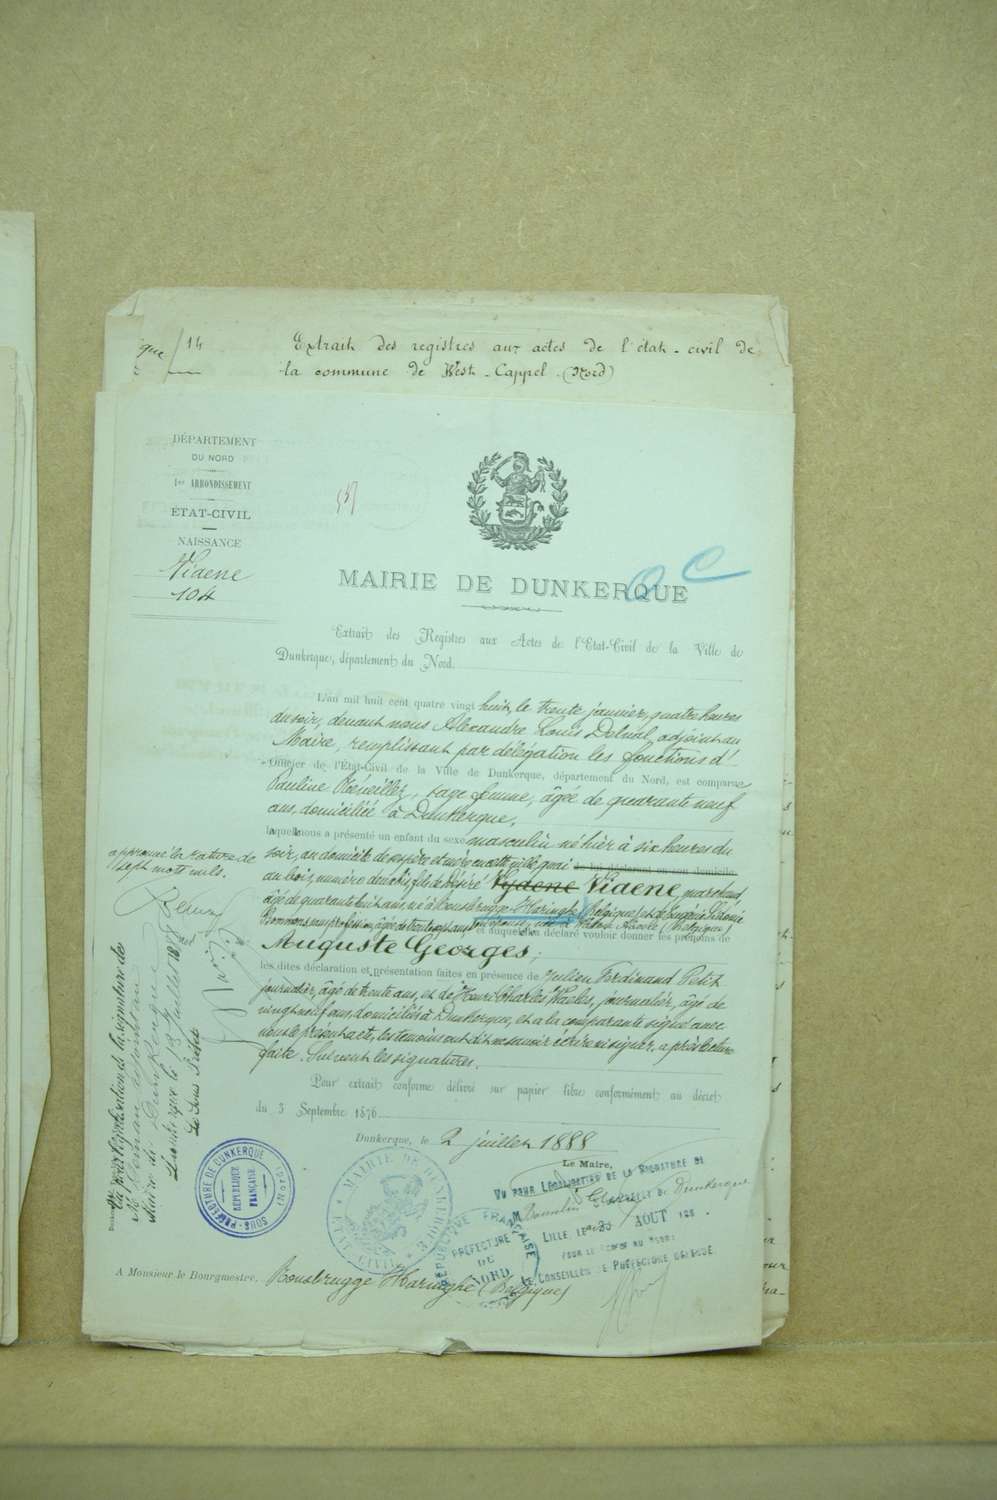 que / 14
Extrait des registres aux actes de l'état-civil de
la commune de West-Cappel (Nord)
DÉPARTEMENT
DU NORD
1er ARRONDISSEMENT
ÉTAT-CIVIL
NAISSANCE
Viaene
104
MAIRIE DE DUNKERQUE
Extrait des Registres aux Actes de l'État-Civil de la Ville de
Dunkerque, département du Nord.
L'an mil huit cent quatre vingt huit, le trente janvier, quatre heures
du soir, devant nous Alexandre Louis Delval, adjoint au
Maire, remplissant par délégation les fonctions d'
Officier de l'État-Civil de la Ville de Dunkerque, département du Nord, est comparue
Pauline, sage femme, âgée de quarante neuf
ans, domiciliée à Dunkerque,
laquelle nous a présenté un enfant du sexe masculin né hier à six heures du
soir, au domicile de ses père et mère en cette ville quai de lui déclarant et son domicile
au bois, numéro, fils de Désiré Vydene Viaene, marchand,
âgé de quarante huit ans, né à Rousbrugge-Haringhe (Belgique) et d'Eugénie Sidonie
sans profession, âgée de trente sept ans (Belgique)
et auquel il a déclaré vouloir donner les prénoms de
Auguste Georges;
les dites déclaration et présentation faites en présence de Julien Ferdinand Petit
journalier, âgé de trente ans, et de Henri Charles, journalier, âgé de
vingt neuf ans, domiciliés à Dunkerque, et a la comparante signé avec
nous le présent acte, les témoins ont dit ne savoir écrire ni signer, après lecture
faite. Suivent les signatures.
Pour extrait conforme délivré sur papier libre conformément au décret
du 3 Septembre 1876
Dunkerque, le 2 juillet 1888
Le Maire,
approuvé la rature de
sept mots nuls.
Vu pour légalisation de la signature de
M.
Maire de Dunkerque
Dunkerque le 13 Juillet 1888
Le Sous Préfet
SOUS-PRÉFECTURE DE DUNKERQUE (NORD)
RÉPUBLIQUE
FRANÇAISE
MAIRIE DE DUNKERQUE
ÉTAT CIVIL
RÉPUBLIQUE FRANÇAISE
PRÉFECTURE
DU
NORD
VU POUR LÉGALISATION DE LA SIGNATURE DE
M
Dunkerque
LILLE, LE 23 AOUT 188
POUR LE PRÉFET DU NORD:
LE CONSEILLER DE PRÉFECTURE DÉLÉGUÉ.
A Monsieur le Bourgmestre, Rousbrugge Haringhe (Belgique)